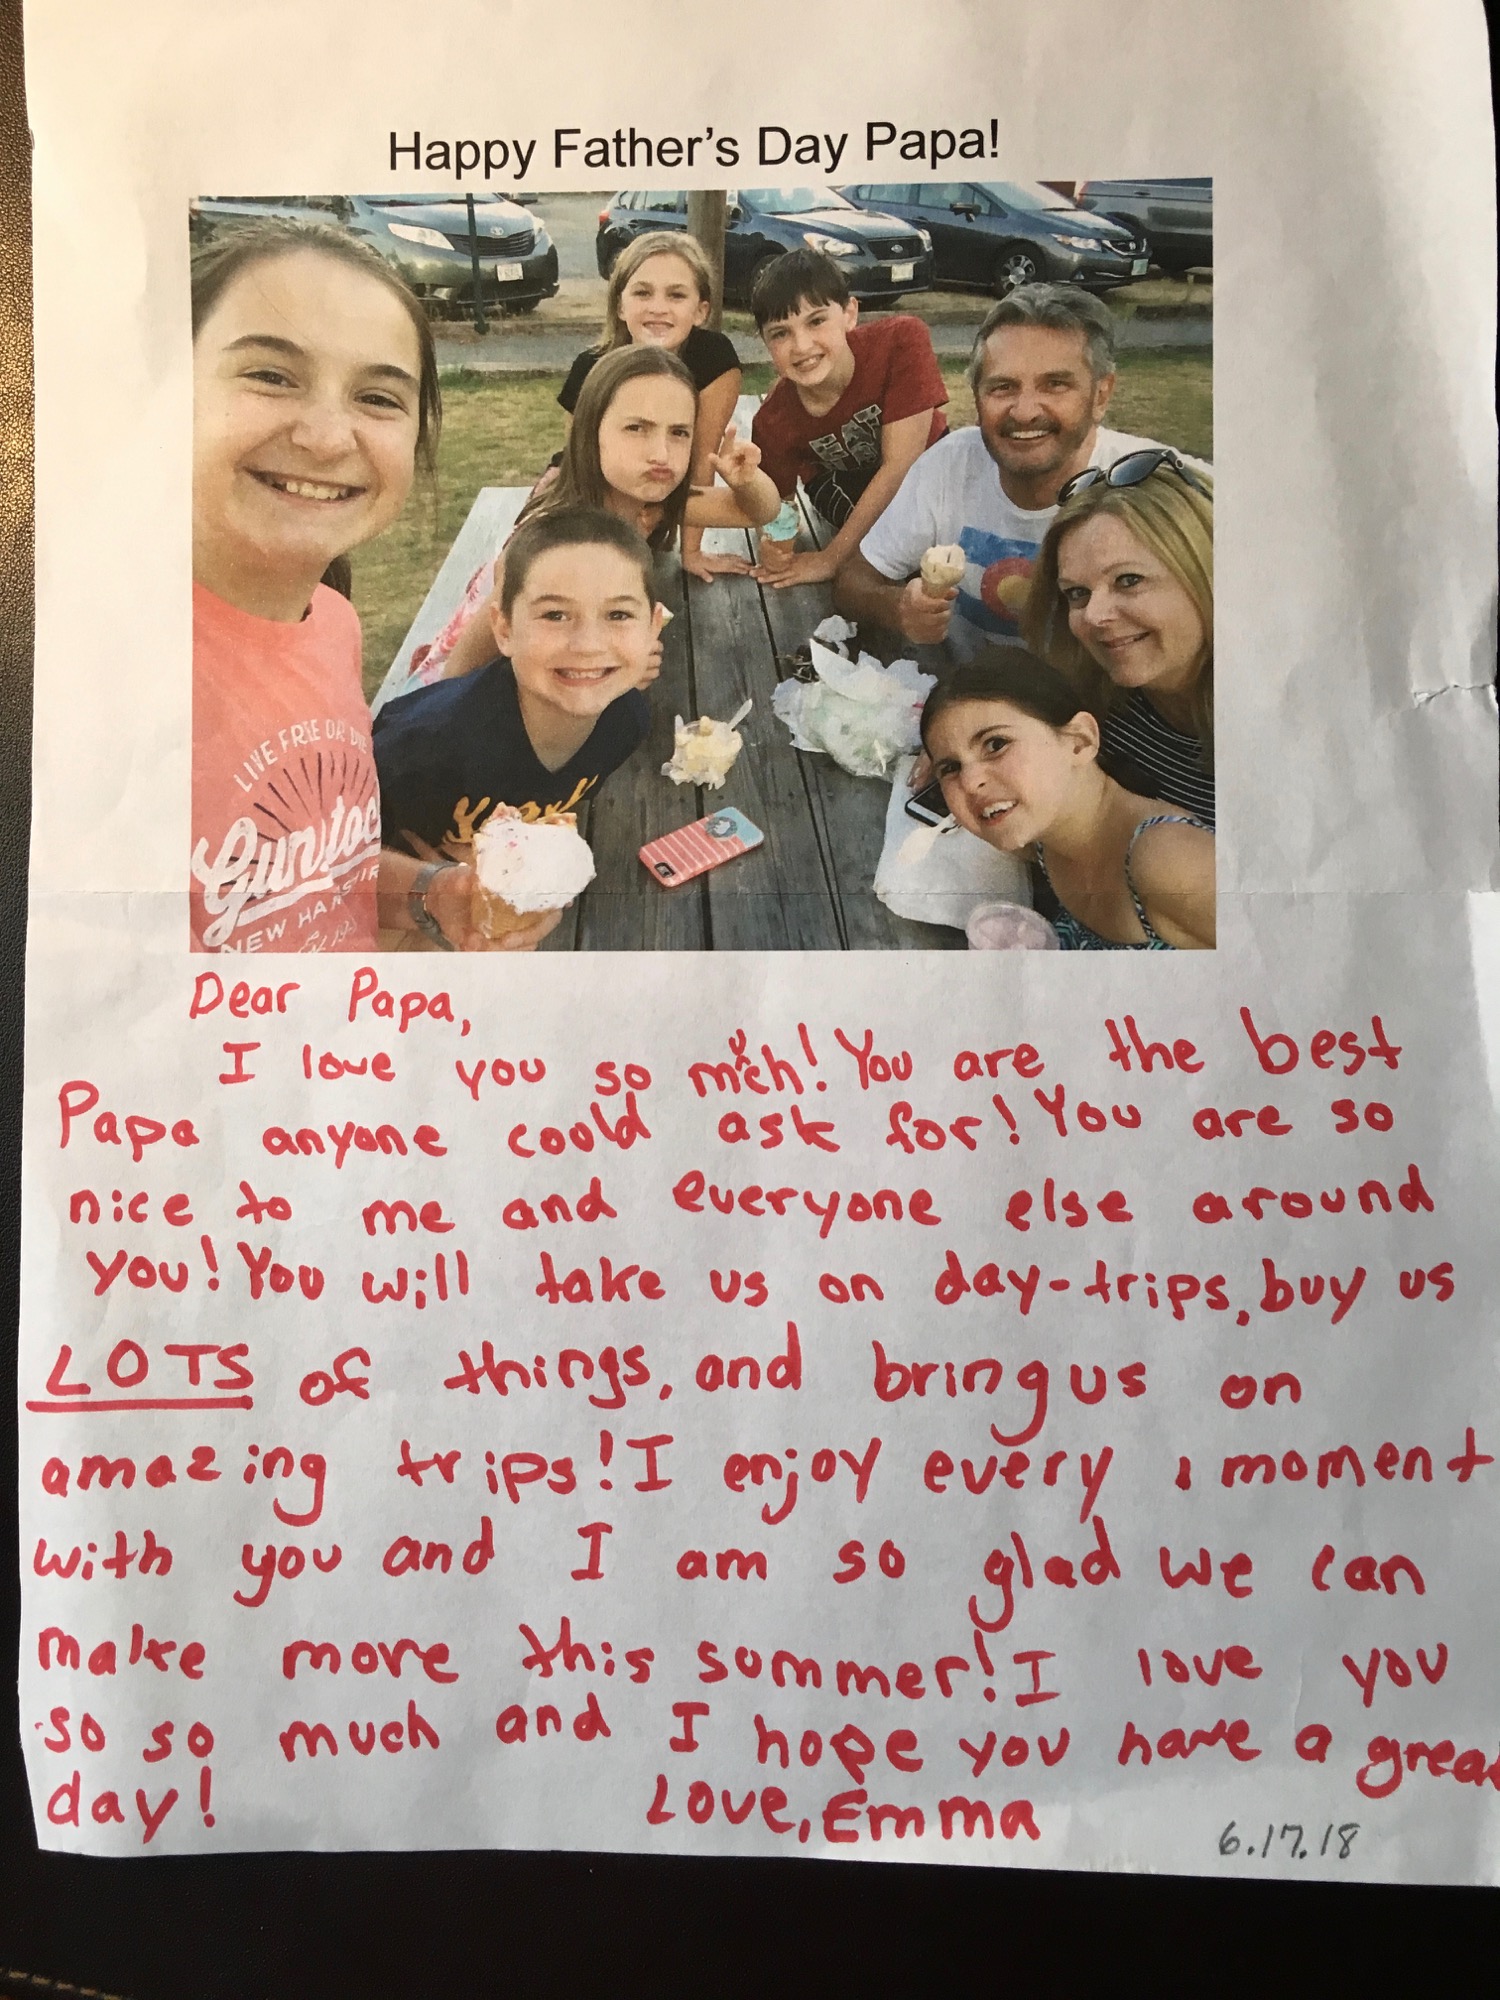 Happy Father's Day Papa!
LIVE FREE OR DIE
Gunstock
NEW HAMPSHIR
Dear Papa,
I love you so much! You are the best
Papa anyone could ask for! You are so
nice to me and everyone else around
you! You will take us on day-trips, buy us
LOTS of things, and bring us on
amazing trips! I enjoy every moment
with you and I am so glad we can
make more this summer! I love you
so so much and I hope you have a great
day! Love, Emma
6.17.18